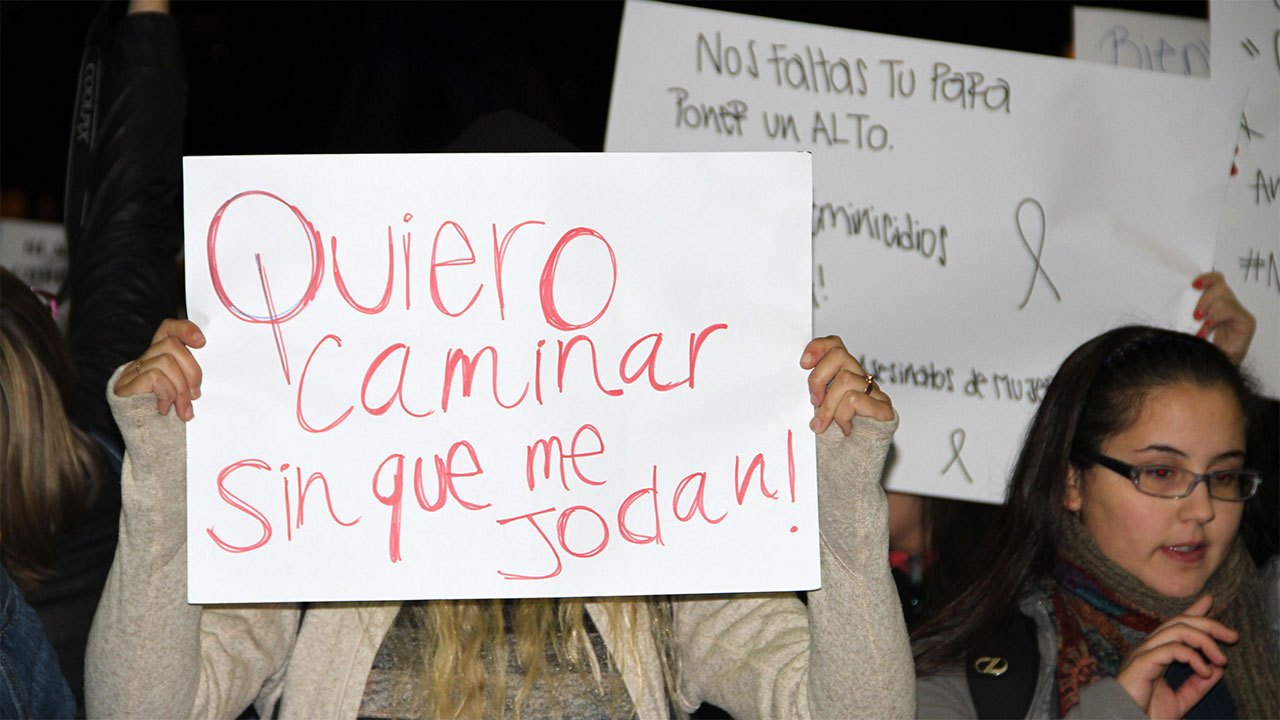 Quiero
caminar
Sin que me
Jodan!
Nos faltas Tu para
Poner un ALTO.
eminicidios
!
sesinatos de Muje
Bien